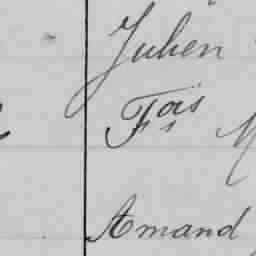 Julien
Fois
Amand